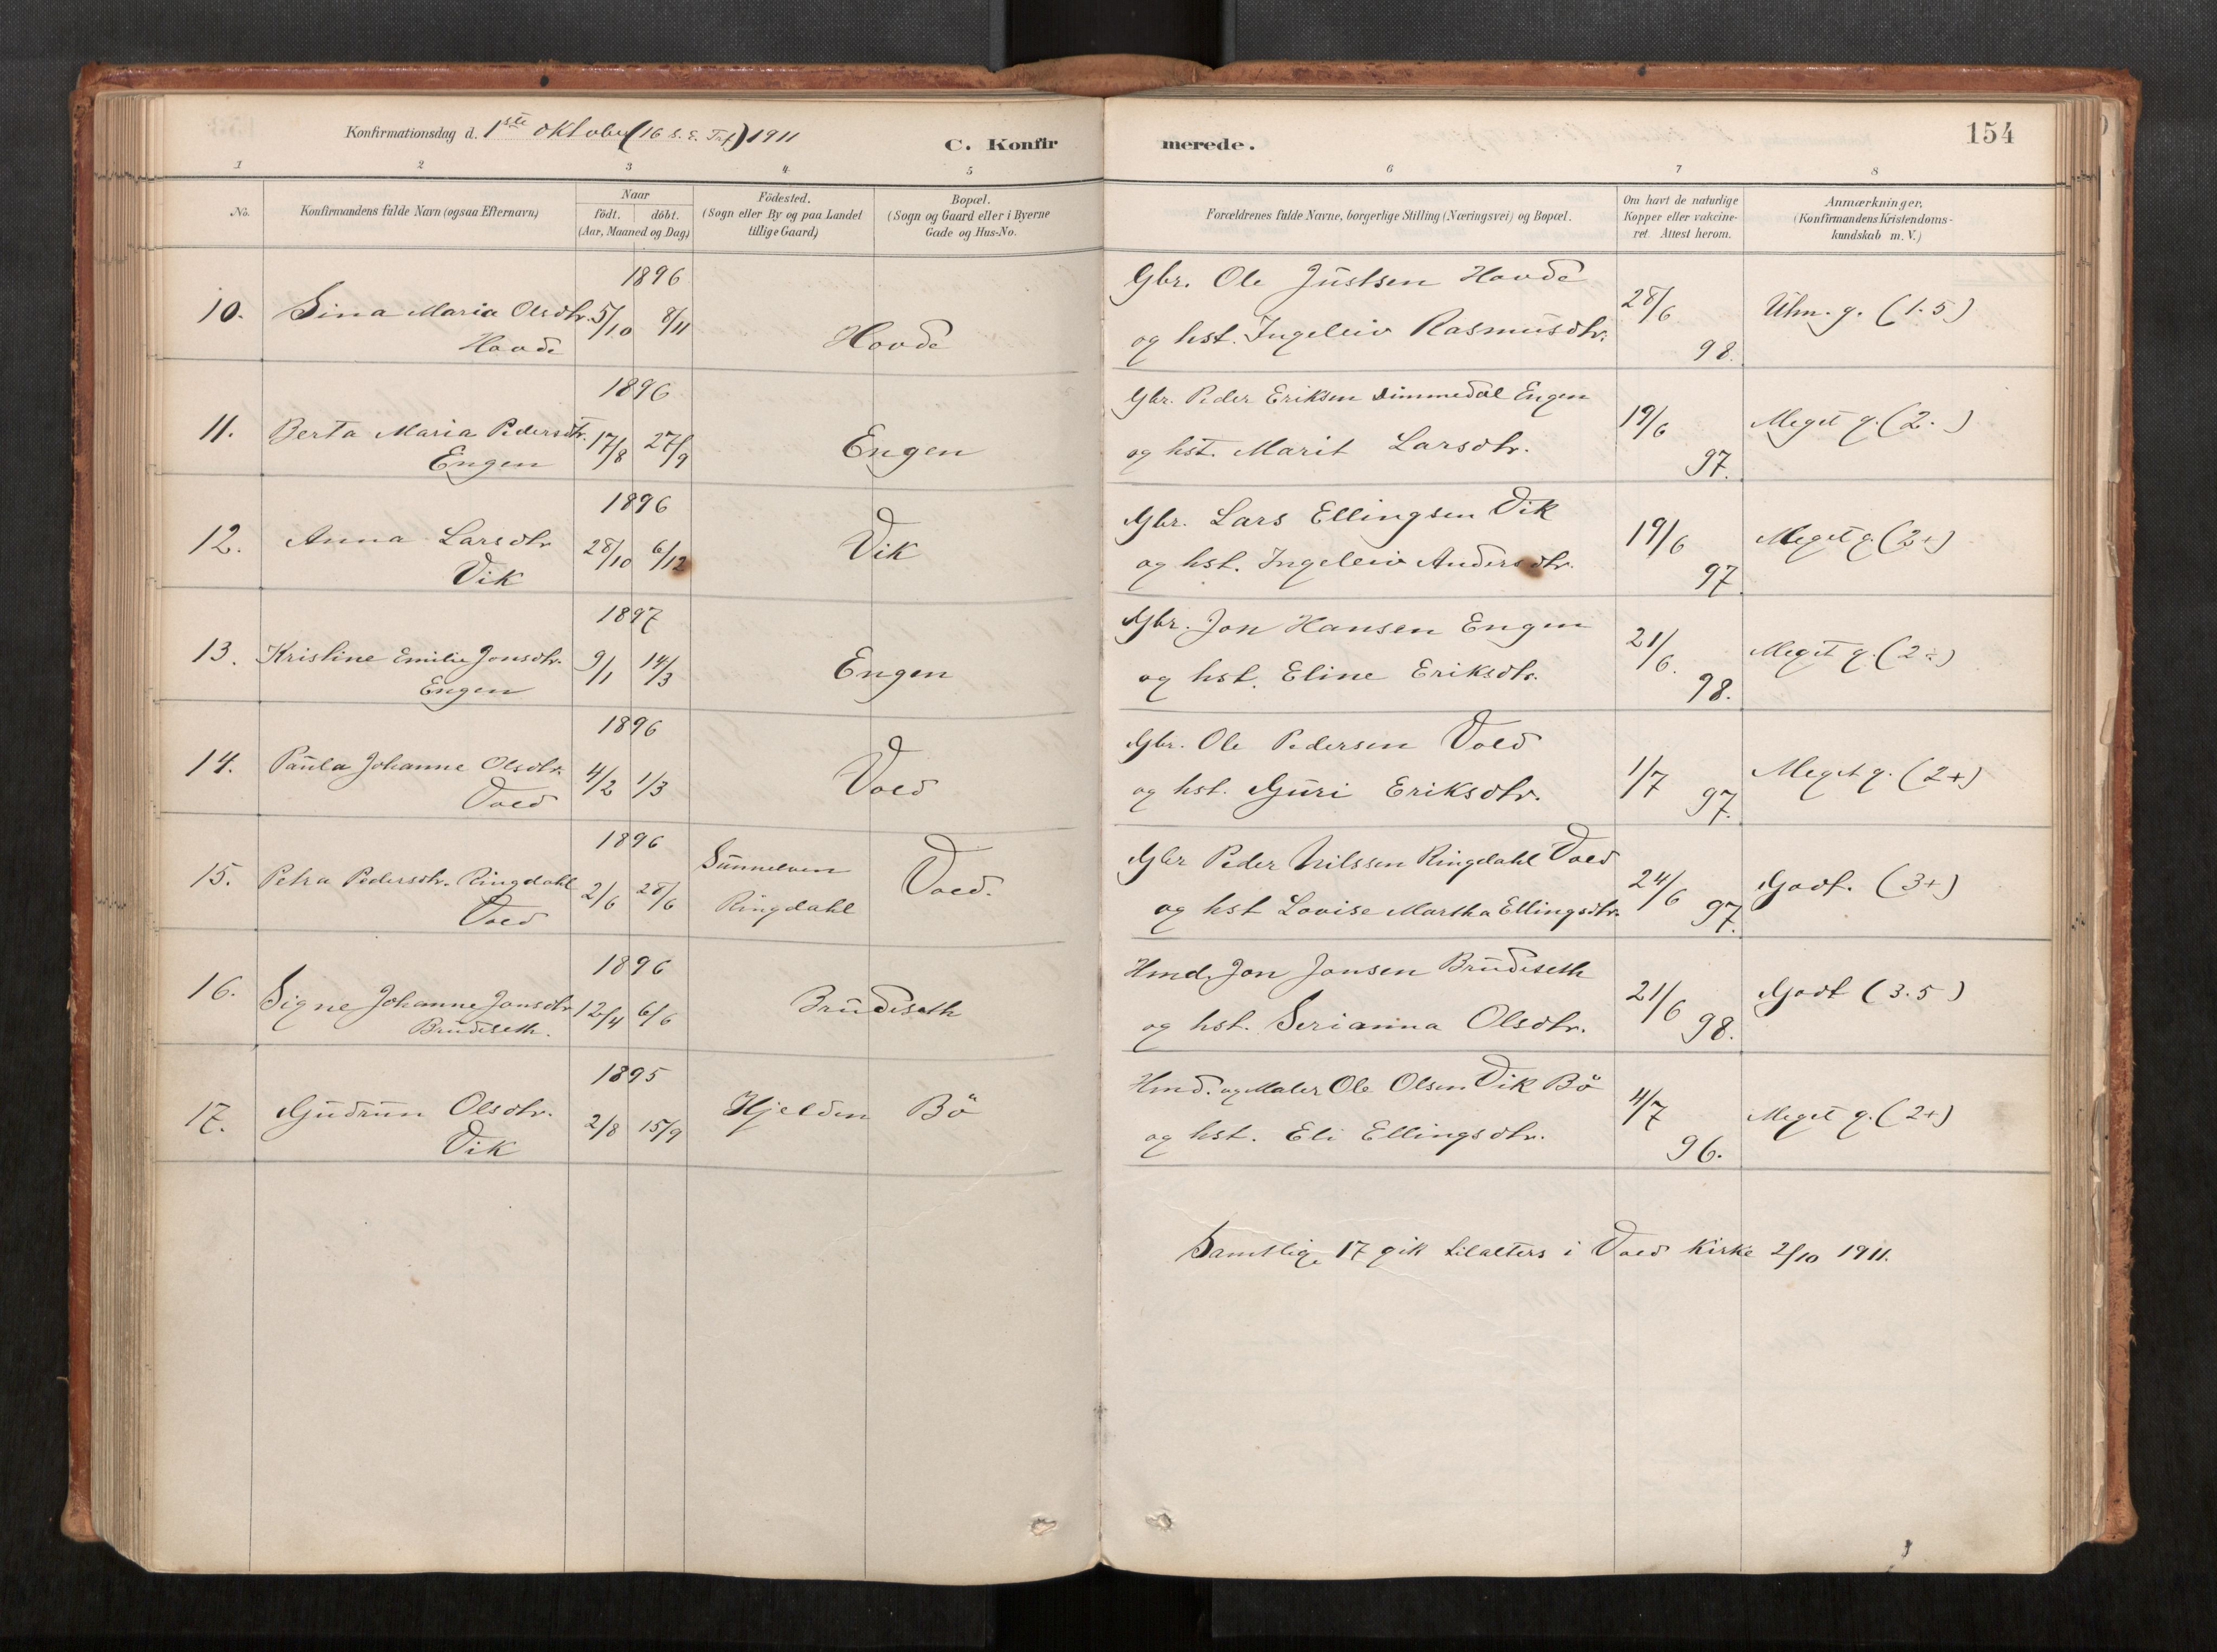 Konfirmationsdag d. 1ste Oktober (16 s. e. Tref) 1911
C. Konfirmerede.
154
1 2 3 4 5 6 7 8
No.
Konfirmandens fulde Navn (ogsaa Efternavn)
Naar
födt. döbt.
(Aar, Maaned og Dag)
Födested.
(Sogn eller By og paa Landet
tillige Gaard)
Bopæl.
(Sogn og Gaard eller i Byerne
Gade og Hus-No.
Forældrenes fulde Navne, borgerlige Stilling (Næringsvei) og Bopæl.
Om havt de naturlige
Kopper eller vakcine-
ret. Attest herom.
Anmærkninger.
(Konfirmandens Kristendoms-
kundskab m. V.)
1896
10. Sina Maria Olsdtr. 5/10 8/11
Hovde
Hovde
Gbr. Ole Justsen Hovde
og hst. Ingeleiv Rasmusdtr.
28/6
98.
Utm. g. (1.5)
1896
11. Berta Maria Pedersdtr. 17/8 27/9
Engen
Engen
Gbr. Peder Eriksen Dimmedal Engen
og hst. Marit Larsdtr.
19/6
97.
Meget g. (2.)
1896
12. Anna Larsdtr 28/10 6/12
Vik
Vik
Gbr. Lars Ellingsen Vik
og hst. Ingeleiv Andersdtr.
19/6
97.
Meget g. (2+)
1897
13. Kristine Emilie Jonsdtr. 9/1 14/3
Engen
Engen
Gbr. Jon Hansen Engen
og hst. Eline Eriksdtr.
21/6.
98.
Meget g. (2÷)
1896
14. Paula Johanne Olsdtr. 4/2 1/3
Vold
Vold
Gbr. Ole Pedersen Vold
og hst. Guri Eriksdtr.
1/7
97.
Meget g. (2+)
1896
15. Petra Pedersdtr. Ringdahl 2/6 28/6
Vold
Sunnelven
Ringdahl
Vold.
Gbr Peder Nilssen Ringdahl Vold
og hst Lovise Martha Ellingsdtr.
24/6
97.
Godt. (3+)
1896
16. Signe Johanne Jonsdtr 12/4 6/6
Brudeseth.
Brudeseth
Hmd. Jon Jonsen Brudeseth
og hst. Serianna Olsdtr.
21/6
98.
Godt (3.5)
1895
17. Gudrun Olsdtr. 2/8 15/9
Vik
Hjelden
Bö
Hmd. og Maler Ole Olsen Vik Bö
og hst. Eli Ellingsdtr.
4/7
96.
Meget g. (2+)
Samtlige 17 gik tilalters i Vold Kirke 2/10 1911.